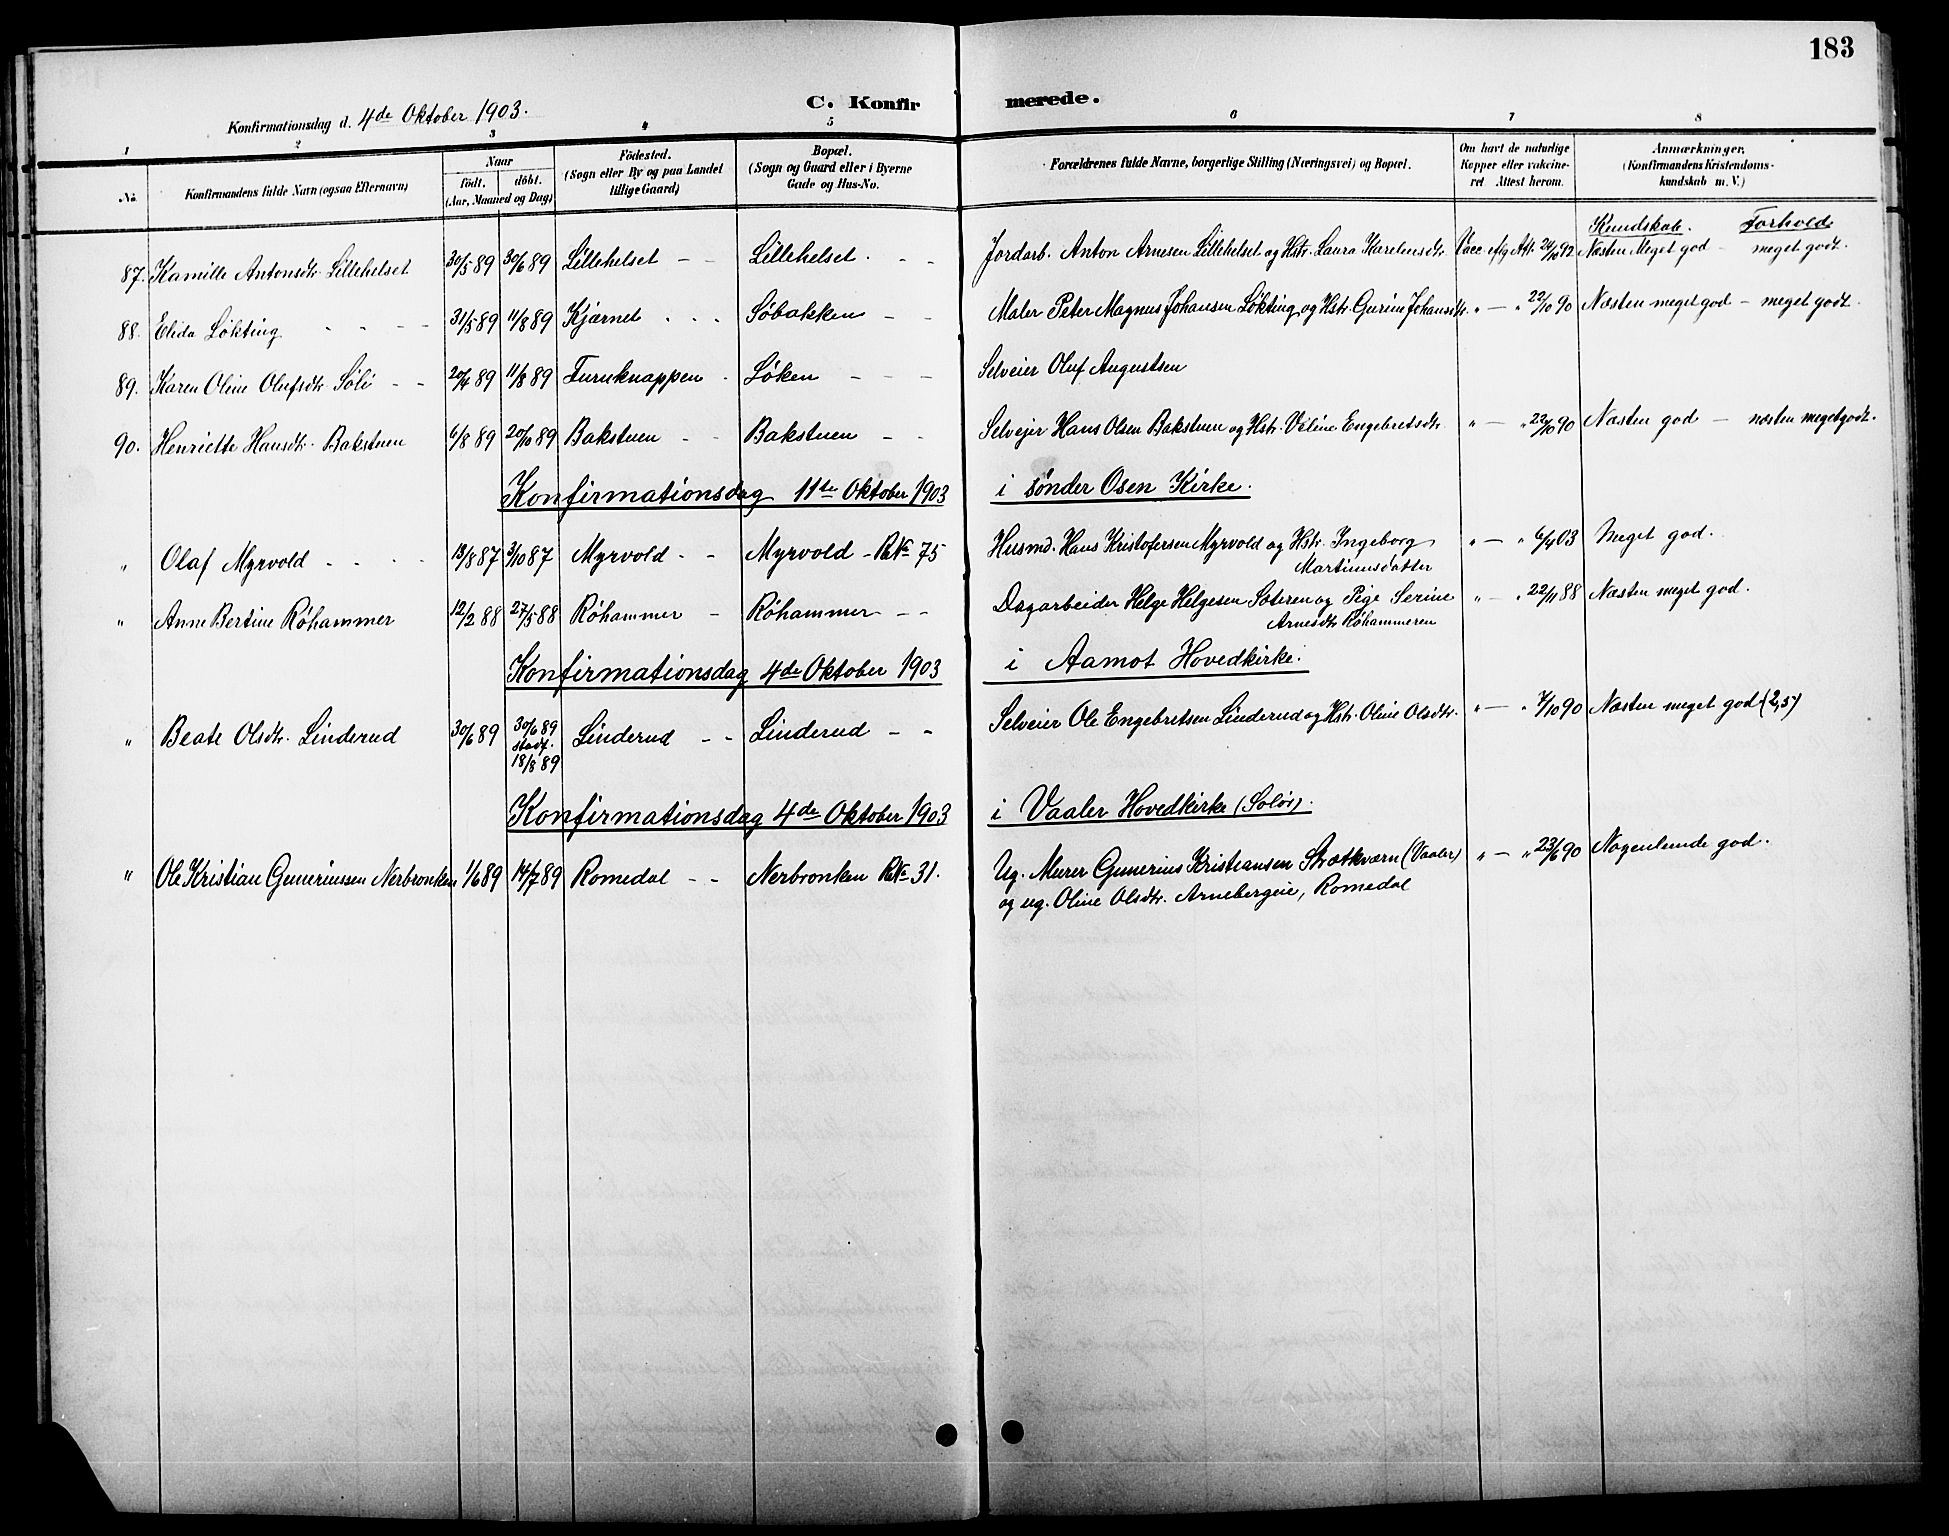 183
C. Konfirmerede.
Konfirmationsdag d. 4de Oktober 1903.
1 2 3 4 5 6 7 8
No. Konfirmandens fulde Navn (ogsaa Efternavn) Naar født. døbt. (Aar, Maaned og Dag) Födested. (Sogn eller By og paa Landet tillige Gaard) Bopæl. (Sogn og Gaard eller i Byerne Gade og Hus-No. Forældrenes fulde Navne, borgerlige Stilling (Næringsvei) og Bopæl. Om havt de naturlige Kopper eller vakcineret Attest herom. Anmærkninger, (Konfirmandens Kristendomskundskab m. V.)
Kundskab. Forhold
87. Kamille Antonsdtr. Lillehelset 30/5 89 30/6 89 Lillehelset – – Lillehelset. – – Jordarb. Anton Arnesen Lillehelset og Hstr. Laura Karelinsdtr. Vacc. eflg. Att. 24/10 92 Næsten Meget god – meget godt.
88. Elida Løkting 31/5 89 11/8 89 Kjærnet Søbakken – – Maler Peter Magnus Johansen Løkting og Hstr. Gurine Johansdtr. " – " 22/10 90 Næsten meget god – meget godt.
89. Karen Oline Olufsdtr. Søli – – 20/4 89 11/8 89 Furuknappen Løken – – – Selveier Oluf Augustsen
90. Henriette Hansdtr. Bakstuen 6/8 89 20/10 89 Bakstuen – – Bakstuen – – Selveier Hans Olsen Bakstuen og Hstr. Viline Engebretsdtr. " – " 22/10 90 Næsten god – næsten meget godt.
Konfirmationsdag 11te Oktober 1903 i søndre Osen Kirke.
" Olaf Myrvold 18/8 87 3/10 87 Myrvold – – Myrvold – RNo 75 Husmd. Hans Kristofersen Myrvold og Hstr. Ingeborg Martinusdatter " – " 6/4 03 Meget god.
" Anne Bertine Røhammer 12/2 88 27/5 88 Røhammer – Røhammer – – Dagarbeider Helge Helgesen Sæteren og Pige Serine Arnesdtr Røhammeren " – " 22/11 88 Næsten meget god.
Konfirmationsdag 4de Oktober 1903 i Aamot Hovedkirke.
" Beate Olsdtr. Linderud 30/6 89 30/6 89 stadf. 18/8 89 Linderud – – Linderud – – Selveier Ole Engebretsen Linderud og Hstr. Oline Olsdtr. " – " 7/10 90 Næsten meget god (2,5)
Konfirmationsdag 4de Oktober 1903 i Vaaler Hovedkirke (Solør).
" Ole Kristian Gunerinssen Nerbronken 1/6 89 14/7 89 Romedal – – Nerbronken RNo 31. Ug. Murer Gunerius Kristiansen Strætkværn (Vaaler) " – " 23/6 90 Nogenlunde god.
og ug. Oline Olsdtr. Arnebergeie, Romedal